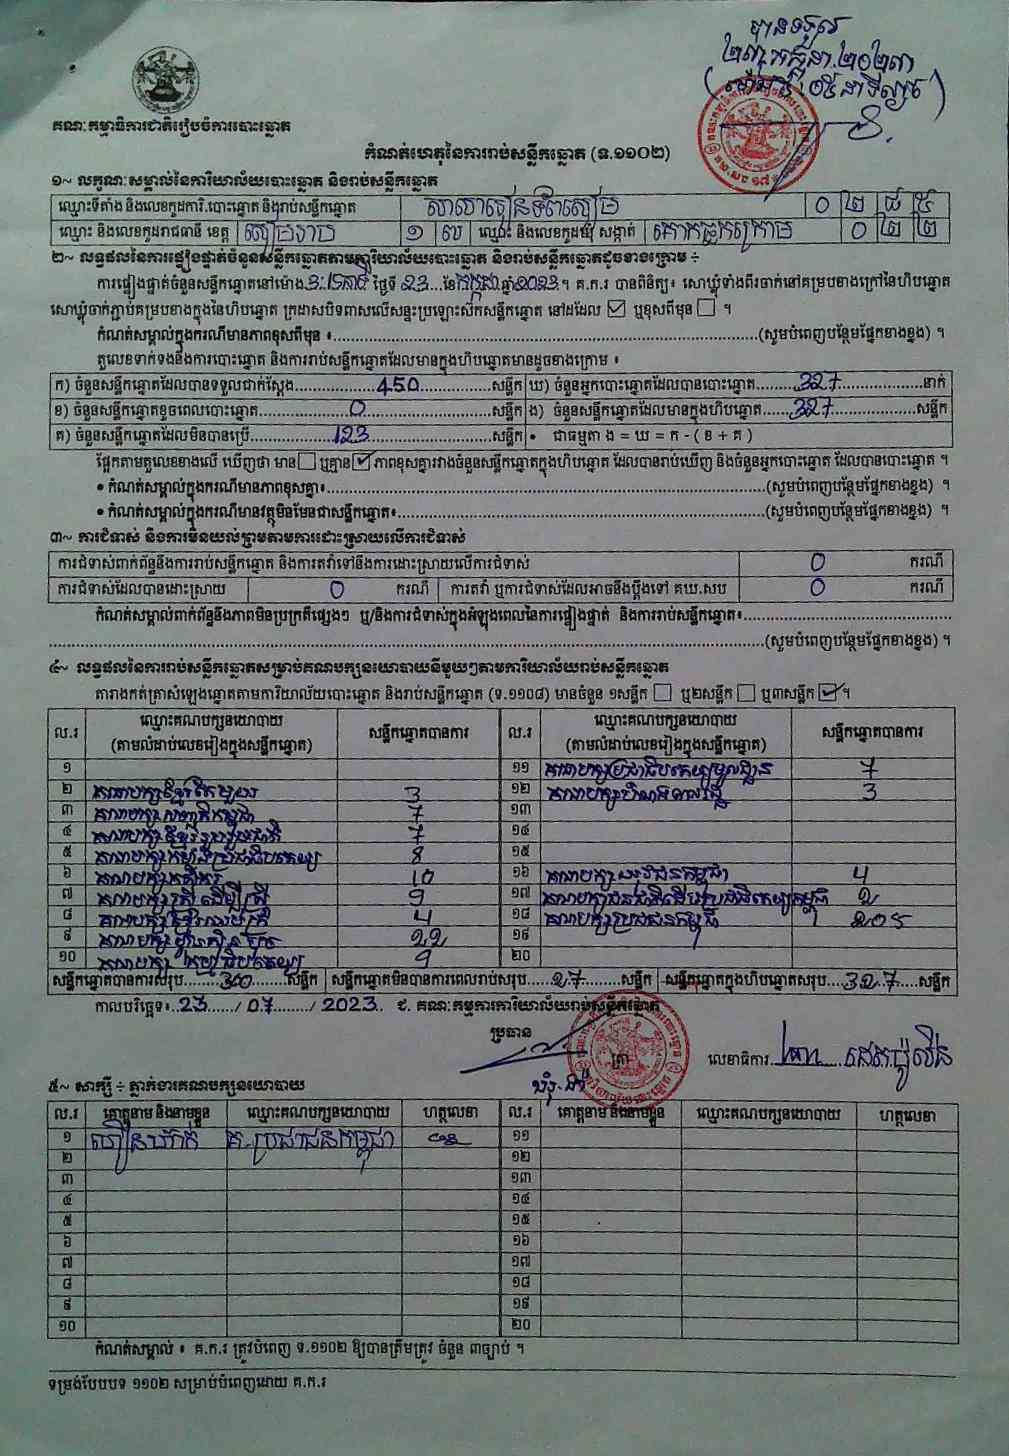 បានទទួល
គណៈកម្មាធិការជាតិរៀបចំការបោះឆ្នោត
កំណត់ហេតុនៃការរាប់សន្លឹកឆ្នោត (ទ.១១០២)
១~ លក្ខណៈសម្គាល់នៃការិយាល័យបោះឆ្នោត និងរាប់សន្លឹកឆ្នោត
ឈ្មោះទីតាំង និងលេខកូដការិ.បោះឆ្នោត និងរាប់សន្លឹកឆ្នោត ០ ២ ៨ ៥
ឈ្មោះ និងលេខកូដរាជធានី ខេត្ត សៀមរាប ១ ៧ ឈ្មោះ និងលេខកូដឃុំ សង្កាត់ គោកធ្លកក្រោម ០ ២ ២
២~ លទ្ធផលនៃការផ្ទៀងផ្ទាត់ចំនួនសន្លឹកឆ្នោតតាមការិយាល័យបោះឆ្នោត និងរាប់សន្លឹកឆ្នោតដូចខាងក្រោម ÷
ការផ្ទៀងផ្ទាត់ចំនួនសន្លឹកឆ្នោតនៅម៉ោង 3:15នាទី ថ្ងៃទី 23 ...ខែកក្កដា ឆ្នាំ2023។ គ.ក.រ បានពិនិត្យ៖ សោឃ្លុំទាំងពីរចាក់នៅគម្របខាងក្រៅនៃហិបឆ្នោត
សោឃ្លុំចាក់ភ្ជាប់គម្របខាងក្នុងនៃហិបឆ្នោត ក្រដាសបិទពាសលើសន្ទះប្រឡោះស៊កសន្លឹកឆ្នោត នៅដដែល ☑ ឬខុសពីមុន ☐ ។
កំណត់សម្គាល់ក្នុងករណីមានភាពខុសពីមុន ៖..........(សូមបំពេញបន្ថែមផ្នែកខាងខ្នង) ។
តួលេខទាក់ទងនឹងការបោះឆ្នោត និងការរាប់សន្លឹកឆ្នោតដែលមានក្នុងហិបឆ្នោតមានដូចខាងក្រោម ៖
ក) ចំនួនសន្លឹកឆ្នោតដែលបានទទួលជាក់ស្តែង..........450..........សន្លឹក ឃ) ចំនួនអ្នកបោះឆ្នោតដែលបានបោះឆ្នោត..........327..........នាក់
ខ) ចំនួនសន្លឹកឆ្នោតខូចពេលបោះឆ្នោត..........0..........សន្លឹក ង) ចំនួនសន្លឹកឆ្នោតដែលមានក្នុងហិបឆ្នោត.......327..........សន្លឹក
គ) ចំនួនសន្លឹកឆ្នោតដែលមិនបានប្រើ..........123..........សន្លឹក • ជាធម្មតា ង = ឃ = ក - ( ខ + គ )
ផ្អែកតាមតួលេខខាងលើ ឃើញថា មាន ☐ ឬគ្មាន ☑ ភាពខុសគ្នារវាងចំនួនសន្លឹកឆ្នោតក្នុងហិបឆ្នោត ដែលបានរាប់ឃើញ និងចំនួនអ្នកបោះឆ្នោត ដែលបានបោះឆ្នោត ។
• កំណត់សម្គាល់ក្នុងករណីមានភាពខុសគ្នា៖..........(សូមបំពេញបន្ថែមផ្នែកខាងខ្នង) ។
• កំណត់សម្គាល់ក្នុងករណីមានវត្ថុមិនមែនជាសន្លឹកឆ្នោត៖..........(សូមបំពេញបន្ថែមផ្នែកខាងខ្នង) ។
៣~ ការជំទាស់ និងការមិនយល់ព្រមតាមការដោះស្រាយលើការជំទាស់
ការជំទាស់ពាក់ព័ន្ធនឹងការរាប់សន្លឹកឆ្នោត និងការតវ៉ាទៅនឹងការដោះស្រាយលើការជំទាស់ 0 ករណី
ការជំទាស់ដែលបានដោះស្រាយ 0 ករណី ការតវ៉ា ឬការជំទាស់ដែលអាចនឹងប្តឹងទៅ គឃ.សប 0 ករណី
កំណត់សម្គាល់ពាក់ព័ន្ធនឹងភាពមិនប្រក្រតីផ្សេងៗ ឬ/និងការជំទាស់ក្នុងអំឡុងពេលនៃការផ្ទៀងផ្ទាត់ និងការរាប់សន្លឹកឆ្នោត៖..........
..........(សូមបំពេញបន្ថែមផ្នែកខាងខ្នង) ។
៤~ លទ្ធផលនៃការរាប់សន្លឹកឆ្នោតសម្រាប់គណបក្សនយោបាយនីមួយៗតាមការិយាល័យរាប់សន្លឹកឆ្នោត
តារាងកត់ត្រាសំឡេងឆ្នោតតាមការិយាល័យបោះឆ្នោត និងរាប់សន្លឹកឆ្នោត (ទ.១១០៨) មានចំនួន ១សន្លឹក ☐ ឬ២សន្លឹក ☐ ឬ៣សន្លឹក ☑។
ល.រ ឈ្មោះគណបក្សនយោបាយ (តាមលំដាប់លេខរៀងក្នុងសន្លឹកឆ្នោត) សន្លឹកឆ្នោតបានការ ល.រ ឈ្មោះគណបក្សនយោបាយ (តាមលំដាប់លេខរៀងក្នុងសន្លឹកឆ្នោត) សន្លឹកឆ្នោតបានការ
១ ១១ គណបក្សប្រជាធិបតេយ្យមូលដ្ឋាន 7
២ គណបក្សខ្មែរតែមួយ 3 ១២ 3
៣ គណបក្សសញ្ជាតិកម្ពុជា 7 ១៣
៤ គណបក្សខ្មែររួបរួមជាតិ 7 ១៤
៥ គណបក្សកម្លាំងប្រជាធិបតេយ្យ 8 ១៥
៦ គណបក្សកសិករ 10 ១៦ គណបក្សយុវជនកម្ពុជា 4
៧ គណបក្សស្ត្រីដើម្បីស្ត្រី 9 ១៧ គណបក្សជនជាតិដើមប្រជាធិបតេយ្យកម្ពុជា 2
៨ 4 ១៨ គណបក្សប្រជាជនកម្ពុជា 205
៩ គណបក្សហ្វ៊ុនស៊ិនប៉ិច 22 ១៩
១០ គណបក្ស ធម្មាធិបតេយ្យ 9 ២០
សន្លឹកឆ្នោតបានការសរុប........300........សន្លឹក សន្លឹកឆ្នោតមិនបានការពេលរាប់សរុប.......27.......សន្លឹក សន្លឹកឆ្នោតក្នុងហិបឆ្នោតសរុប....327......សន្លឹក
កាលបរិច្ឆេទ..23....../ 07......../ 2023.. ជ. គណៈកម្មការការិយាល័យរាប់សន្លឹកឆ្នោត
ប្រធាន
លេខាធិការ
៥~ សាក្សី ÷ ភ្នាក់ងារគណបក្សនយោបាយ
ល.រ គោត្តនាម និងនាមខ្លួន ឈ្មោះគណបក្សនយោបាយ ហត្ថលេខា ល.រ គោត្តនាម និងនាមខ្លួន ឈ្មោះគណបក្សនយោបាយ ហត្ថលេខា
១ គ.ប្រជាជនកម្ពុជា ១១
២ ១២
៣ ១៣
៤ ១៤
៥ ១៥
៦ ១៦
៧ ១៧
៨ ១៨
៩ ១៩
១០ ២០
កំណត់សម្គាល់ ៖ គ.ក.រ ត្រូវបំពេញ ទ.១១០២ ឱ្យបានត្រឹមត្រូវ ចំនួន ៣ច្បាប់ ។
ទម្រង់បែបបទ ១១០២ សម្រាប់បំពេញដោយ គ.ក.រ